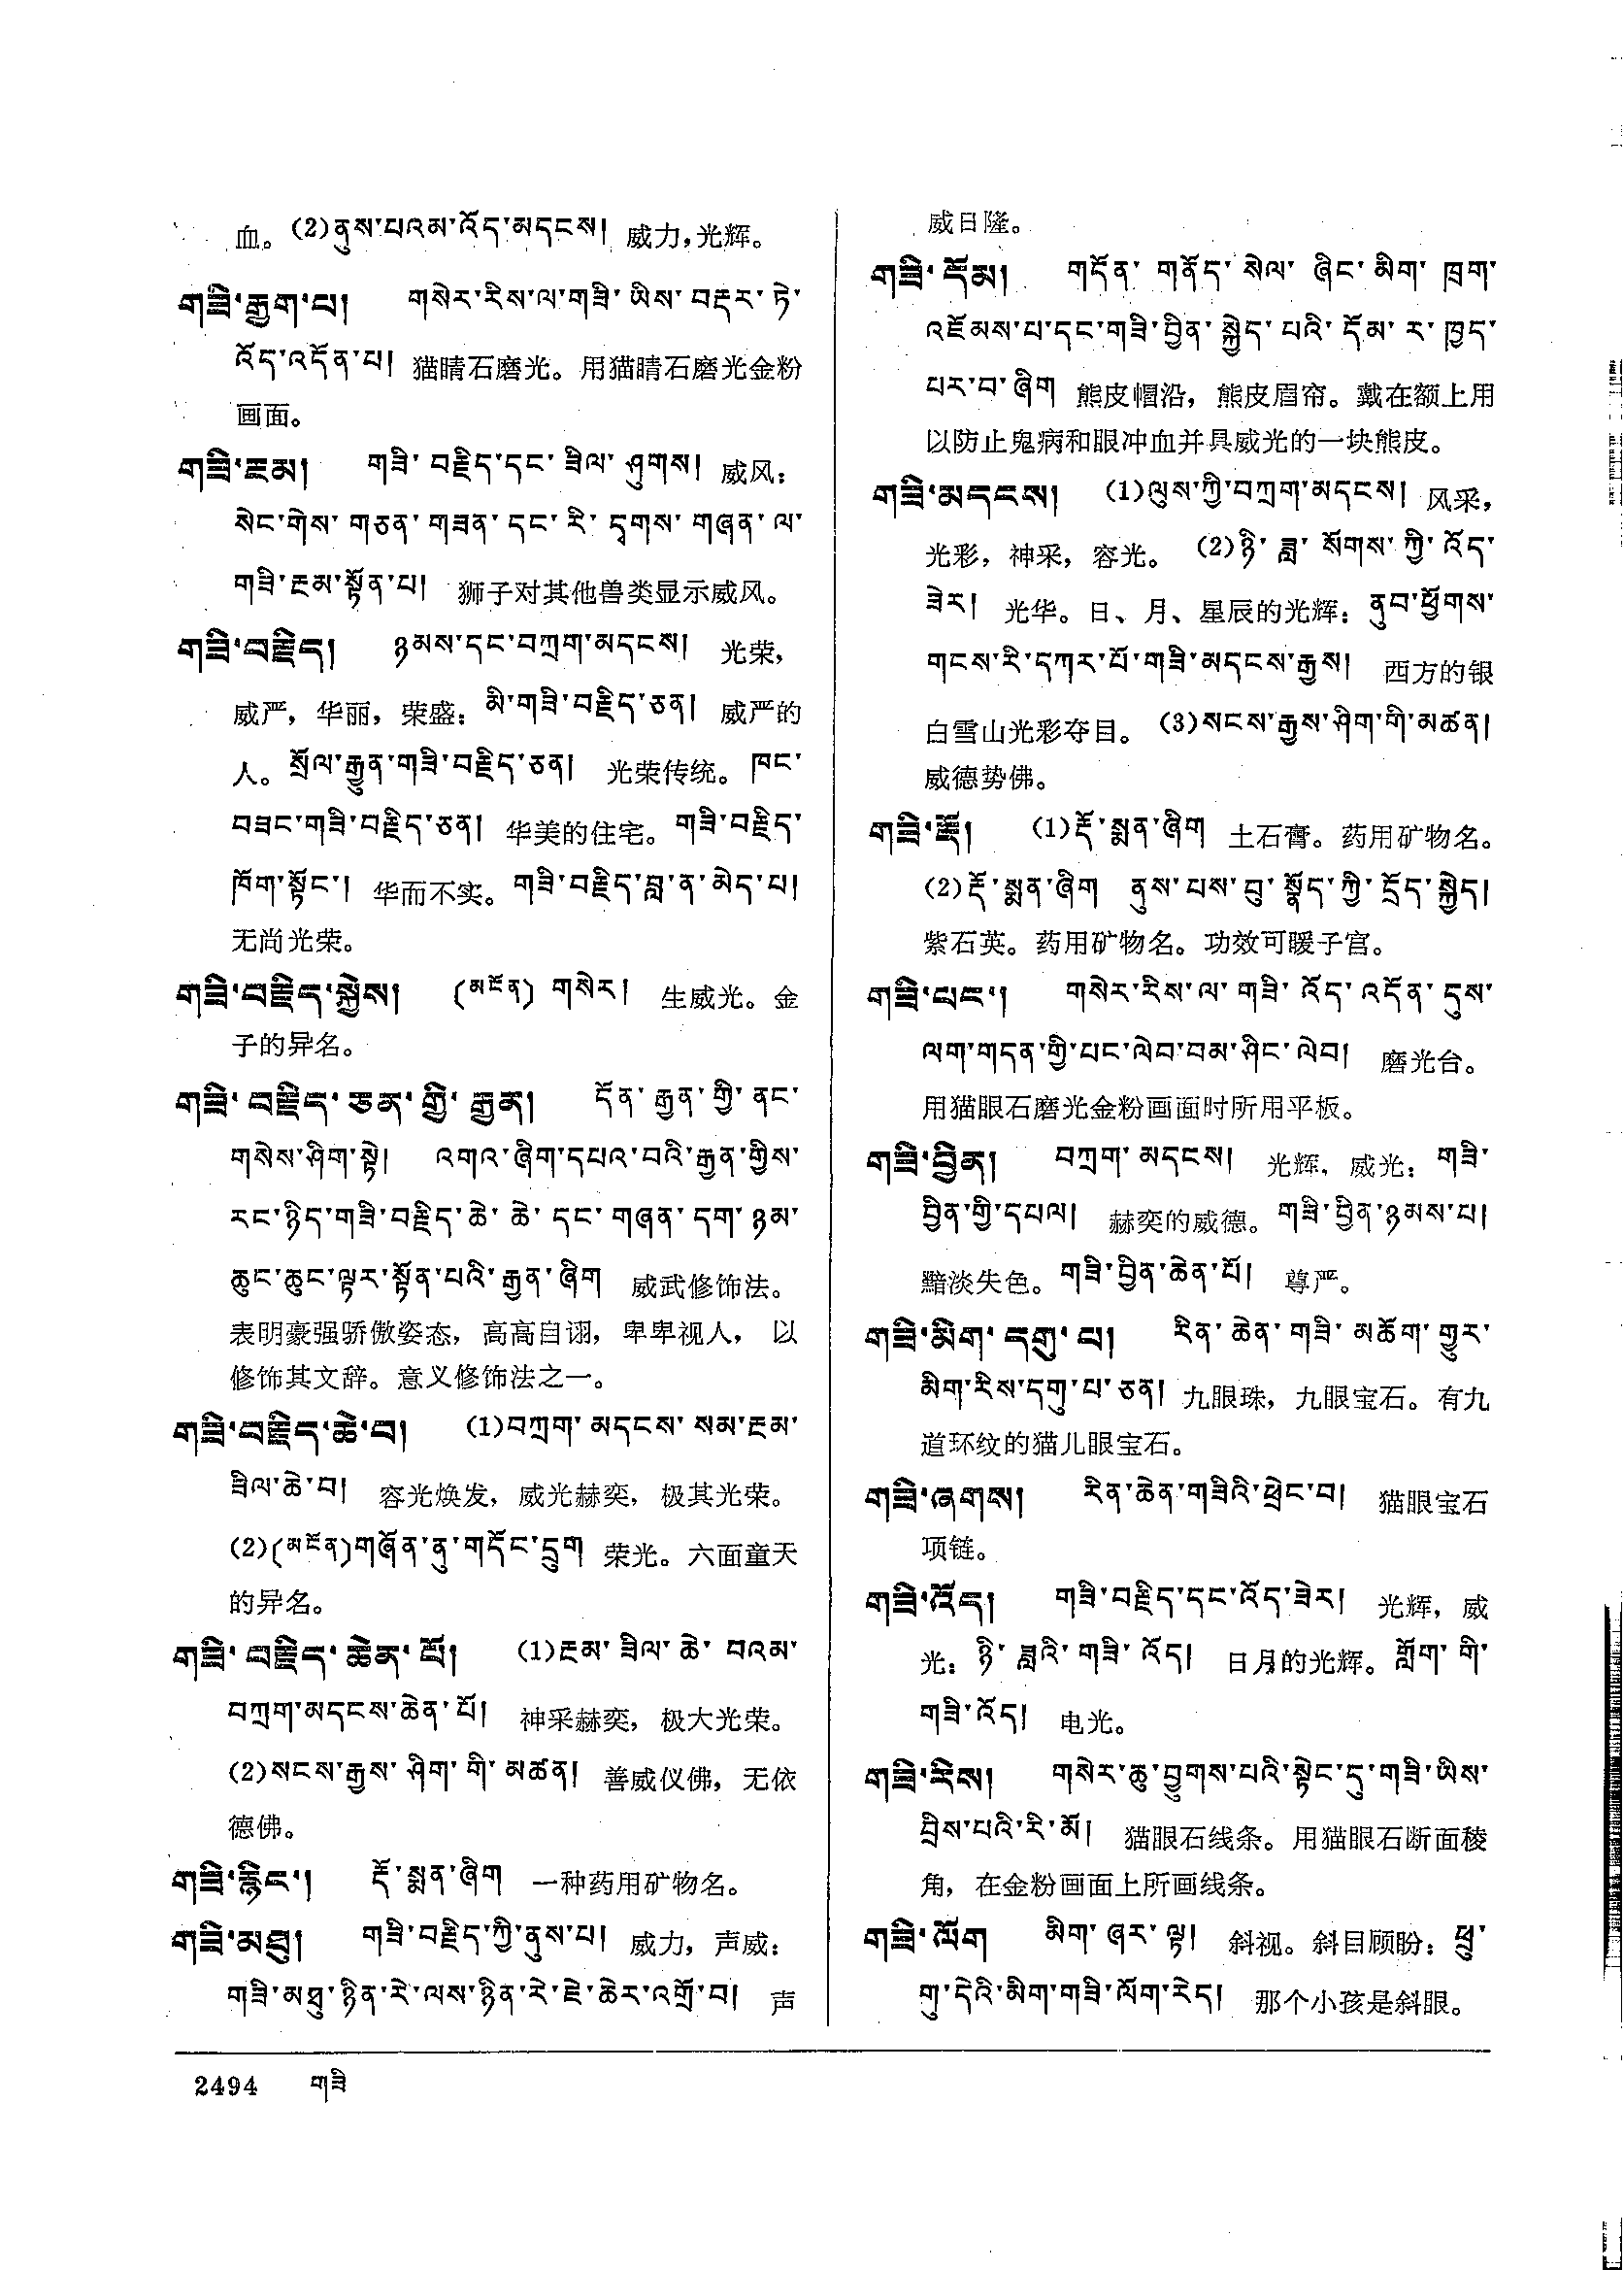 血。(2)ནུས་པའམ་འོད་མདངས། 威力,光辉。
གཟི་རྒྱག་པ། གསེར་རིས་ལ་གཟི་ཡིས་བརྡར་ཏེ་
འོད་འདོན་པ། 猫睛石磨光。用猫睛石磨光金粉
画面。
གཟི་རྔམ། གཟི་བརྗིད་དང་ཟིལ་ཤུགས། 威风:
སེང་གེས་གཅན་གཟན་དང་རི་དྭགས་གཞན་ལ་
གཟི་རྔམ་སྟོན་པ། 狮子对其他兽类显示威风。
གཟི་བརྗིད། ཉམས་དང་བཀྲག་མདངས། 光荣,
威严,华丽,荣盛: མི་གཟི་བརྗིད་ཅན། 威严的
人。སྲོལ་རྒྱུན་གཟི་བརྗིད་ཅན། 光荣传统。ཁང་
བཟང་གཟི་བརྗིད་ཅན། 华美的住宅。གཟི་བརྗིད་
ཁོག་སྟོང་། 华而不实。གཟི་བརྗིད་བླ་ན་མེད་པ།
无尚光荣。
གཟི་བརྗིད་སྐྱེས། (མངོན) གསེར། 生威光。金
子的异名。
གཟི་བརྗིད་ཅན་གྱི་རྒྱན། དོན་རྒྱན་གྱི་ནང་
གསེས་ཤིག་སྟེ། འགའ་ཞིག་དཔའ་བའི་རྒྱན་གྱིས་
རང་ཉིད་གཟི་བརྗིད་ཆེ་ཆེ་དང་གཞན་དག་ཉམ་
ཆུང་ཆུང་ལྟར་སྟོན་པའི་རྒྱན་ཞིག 威武修饰法。
表明豪强骄傲姿态,高高自诩,卑卑视人,以
修饰其文辞。意义修饰法之一。
གཟི་བརྗིད་ཆེ་བ། (1)བཀྲག་མདངས་སམ་རྔམ་
ཟིལ་ཆེ་བ། 容光焕发,威光赫奕,极其光荣。
(2)(མངོན)གཞོན་ནུ་གདོང་དྲུག 荣光。六面童天
的异名。
གཟི་བརྗིད་ཆེན་པོ། (1)རྔམ་ཟིལ་ཆེ་བའམ་
བཀྲག་མདངས་ཆེན་པོ། 神采赫奕,极大光荣。
(2)སངས་རྒྱས་ཤིག་གི་མཚན། 善威仪佛,无依
德佛。
གཟི་རྙིང་། རྡོ་སྨན་ཞིག 一种药用矿物名。
གཟི་མཐུ། གཟི་བརྗིད་ཀྱི་ནུས་པ། 威力,声威:
གཟི་མཐུ་ཉིན་རེ་ལས་ཉིན་རེ་ཇེ་ཆེར་འགྲོ་བ། 声
威日隆。
གཟི་དོམ། གདོན་གནོད་སེལ་ཞིང་མིག་ཁྲག་
འཇོམས་པ་དང་གཟི་བྱིན་སྐྱེད་པའི་དོམ་ར་ཁྱད་
པར་བ་ཞིག 熊皮帽沿,熊皮眉帘。戴在额上用
以防止鬼病和眼冲血并具威光的一块熊皮。
གཟི་མདངས། (1)ལུས་ཀྱི་བཀྲག་མདངས། 风采,
光彩,神采,容光。(2)ཉི་ཟླ་སོགས་ཀྱི་འོད་
ཟེར། 光华。日、月、星辰的光辉: ནུབ་ཕྱོགས་
གངས་རི་དཀར་པོ་གཟི་མདངས་རྒྱས། 西方的银
白雪山光彩夺目。(3)སངས་རྒྱས་ཤིག་གི་མཚན།
威德势佛。
གཟི་རྡོ། (1)རྡོ་སྨན་ཞིག 土石膏。药用矿物名。
(2)རྡོ་སྨན་ཞིག ནུས་པས་བུ་སྣོད་ཀྱི་དྲོད་སྐྱེད།
紫石英。药用矿物名。功效可暖子宫。
གཟི་པང་། གསེར་རིས་ལ་གཟི་འོད་འདོན་དུས་
ལག་གདན་གྱི་པང་ལེབ་བམ་ཤིང་ལེབ། 磨光台。
用猫眼石磨光金粉画面时所用平板。
གཟི་བྱིན། བཀྲག་མདངས། 光辉,威光: གཟི་
བྱིན་གྱི་དཔལ། 赫奕的威德。གཟི་བྱིན་ཉམས་པ།
黯淡失色。གཟི་བྱིན་ཆེན་པོ། 尊严。
གཟི་མིག་དགུ་པ། རིན་ཆེན་གཟི་མཆོག་གྱུར་
མིག་རིས་དགུ་པ་ཅན། 九眼珠,九眼宝石。有九
道环纹的猫儿眼宝石。
གཟི་ཞགས། རིན་ཆེན་གཟིའི་ཕྲེང་བ། 猫眼宝石
项链。
གཟི་འོད། གཟི་བརྗིད་དང་འོད་ཟེར། 光辉,威
光: ཉི་ཟླའི་གཟི་འོད། 日月的光辉。གློག་གི་
གཟི་འོད། 电光。
གཟི་རིས། གསེར་ཆུ་བྱུགས་པའི་སྟེང་དུ་གཟི་ཡིས་
བྲིས་པའི་རི་མོ། 猫眼石线条。用猫眼石断面稜
角,在金粉画面上所画线条。
གཟི་ལོག མིག་ཞར་ལྟ། 斜视。斜目顾盼: ཕྲུ་
གུ་དེའི་མིག་གཟི་ལོག་རེད། 那个小孩是斜眼。
2494 གཟི